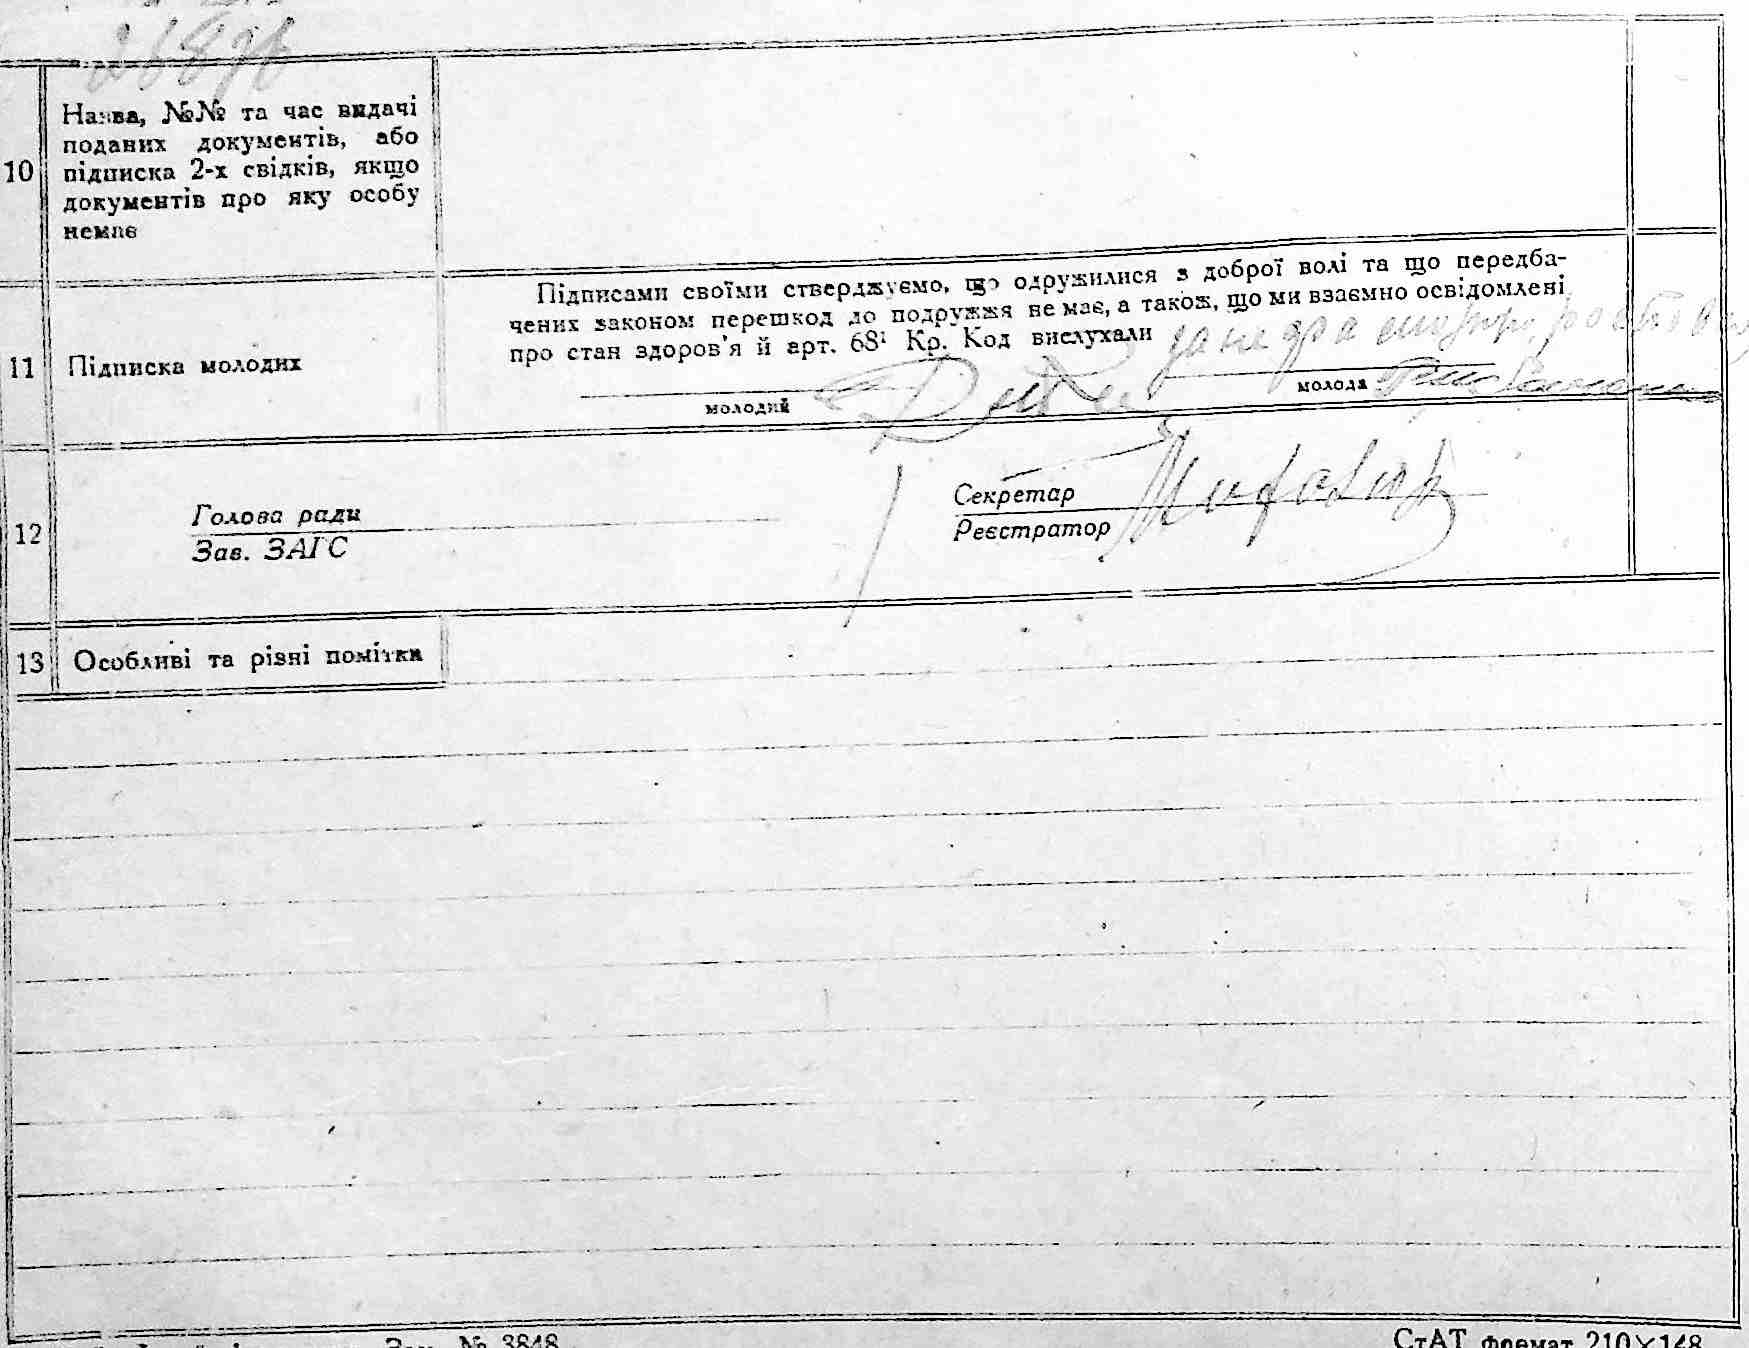 10
Назва, №№ та час видачі
поданих документів, або
підписка 2-х свідків, якщо
документів про яку особу
немає
11
Підписка молодих
Підписами своїми стверджуємо, що одружилися з доброї волі та що передба-
чених законом перешкод до подружжя немає, а також, що ми взаємно освідомлені
про стан здоров'я й арт. 68¹ Кр. Код вислухали
молодий
молода
12
Голова ради
Зав. ЗАГС
Секретар
Реєстратор
13
Особливі та різні помітки
Зам. № 3848
СтАТ формат 210×148